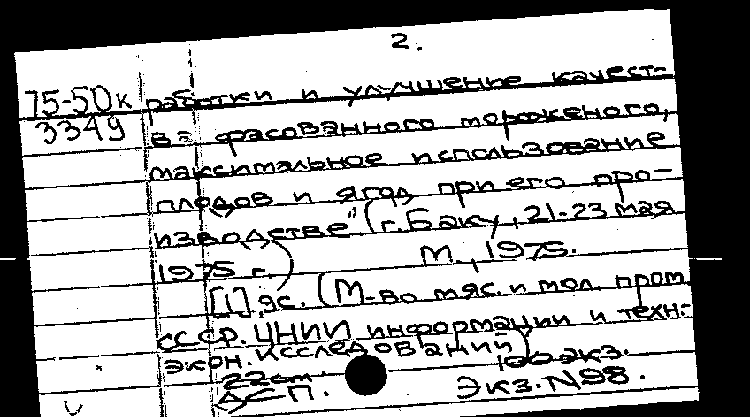 2.
75-50к
3349
работки и улучшение качест-
ва фасованного мороженого,
максимальное использование
плодов и ягод при его про-
изводстве" (г. Баку, 21-23 мая
1975 г.) М., 1975.
[1] 9с. (М-во мяс. и мол. пром.
СССР. ЦНИИ информации и техн.-
экон. исследований)
22см. 100 экз.
ДСП. Экз. N98.